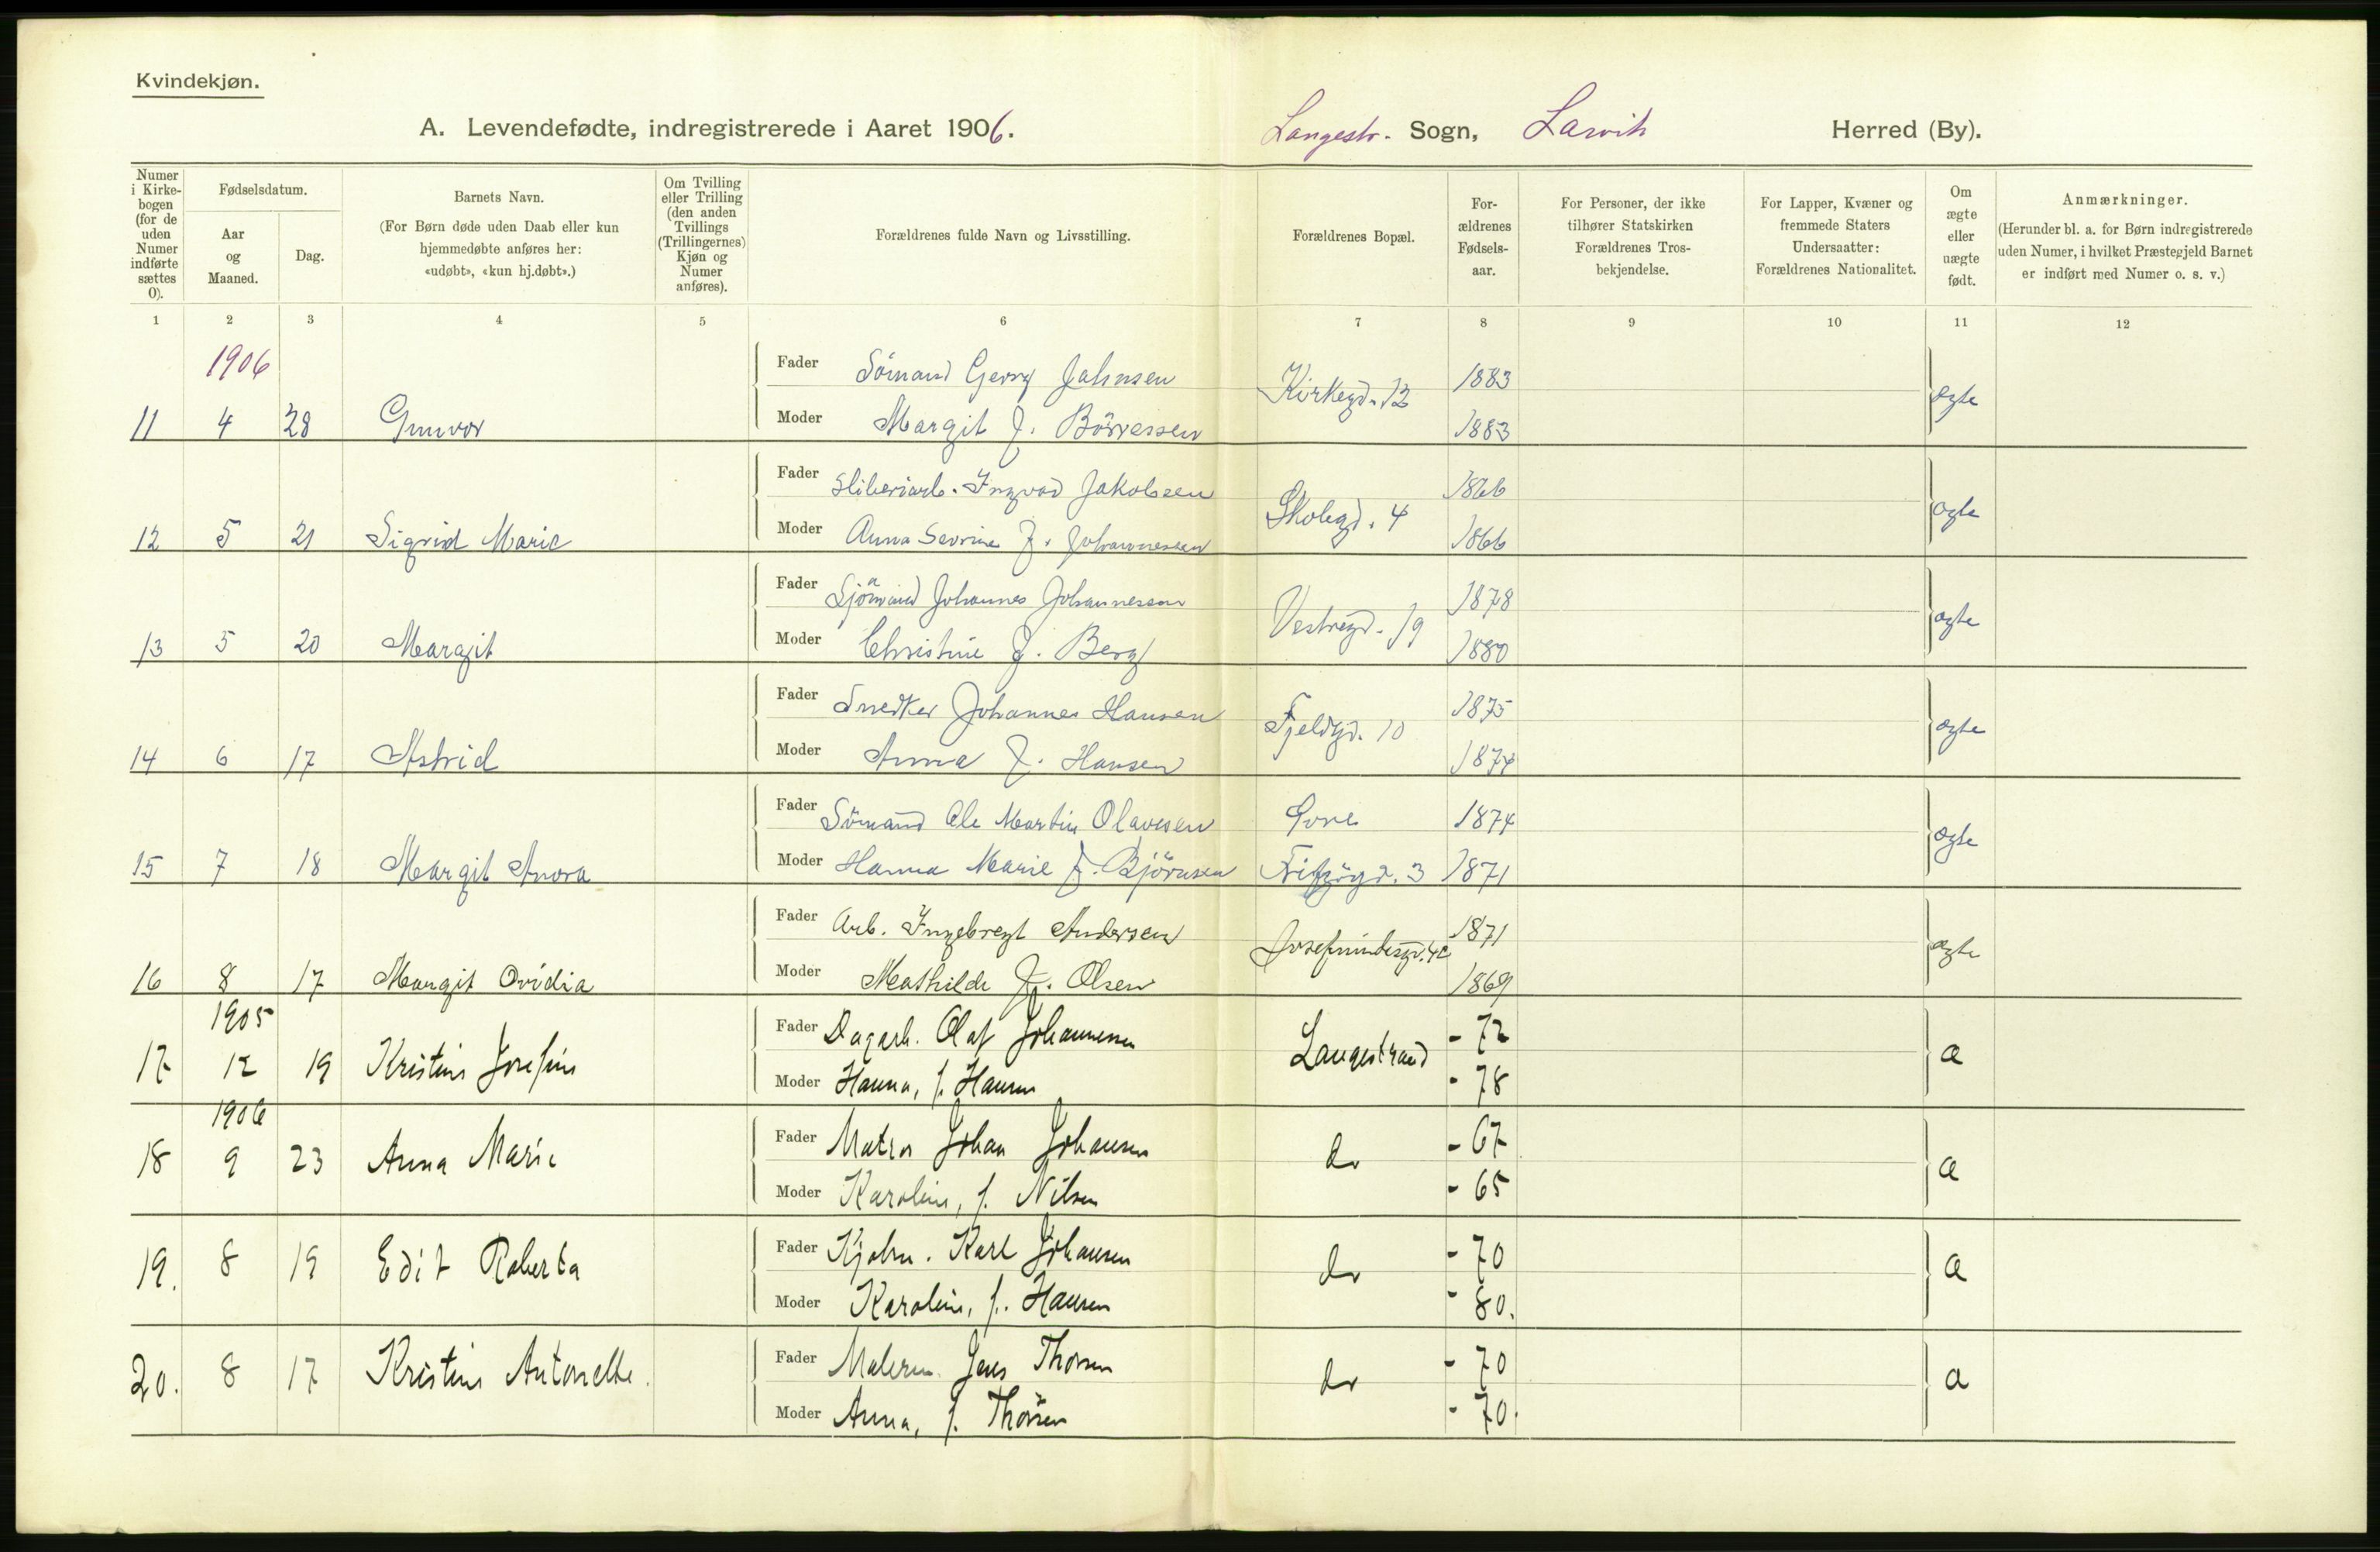 Kvindekjøn.
A. Levendefødte, indregistrerede i Aaret 1906.
Langestr. Sogn, Larvik Herred (By).
Numer i Kirkebogen (for de uden Numer indførte sættes 0).
Fødselsdatum.
Aar og Maaned.
Dag.
Barnets Navn.
(For Børn døde uden Daab eller kun hjemmedøbte anføres her: «udøbt», «kun hj.døbt».)
Om Tvilling eller Trilling (den anden Tvillings (Trillingernes) Kjøn og Numer anføres).
Forældrenes fulde Navn og Livsstilling.
Forældrenes Bopæl.
Forældrenes Fødselsaar.
For Personer, der ikke tilhører Statskirken Forældrenes Trosbekjendelse.
For Lapper, Kvæner og fremmede Staters Undersaatter: Forældrenes Nationalitet.
Om ægte eller uægte født.
Anmærkninger.
(Herunder bl. a. for Børn indregistrerede uden Numer, i hvilket Præstegjeld Barnet er indført med Numer o. s. v.)
1 2 3 4 5 6 7 8 9 10 11 12
1906
Fader Sömand Georg Jahnsen Kirkegd. 12 1883 ægte
11 4 28 Gunvor Moder Margit f. Börresen 1883
Fader Sliberiarb. Ingvad Jakobsen Skolegd. 4 1866 ægte
12 5 21 Sigrid Marie Moder Anna Sevrine f. Johannessen 1866
Fader Sjömand Johannes Johannesen Vestregd. 19 1878 ægte
13 5 20 Margit Moder Christine f. Berg 1880
Fader Snedker Johannes Hansen Fjeldgd. 10 1875 ægte
14 6 17 Astrid Moder Anna f. Hansen 1874
Fader Sömand Ole Martin Olavesen 1874 ægte
15 7 18 Margit Anora Moder Hanna Marie f. Björnsen 3 1871
Fader Arb. Ingebregt Andersen 1871 ægte
16 8 17 Margit Ovidia Moder Mathilde f. Olsen 1869
1905
Fader Dagarb. Olaf Johannessen Langestrand - 72 æ
17 12 19 Kristine Josefine Moder Hanna, f. Hansen - 78
1906
Fader Matros Johan Johansen do - 67 æ
18 9 23 Anna Marie Moder Karoline, f. Nilsen - 65
Fader Karl Johansen do - 70 æ
19. 8 19 Edit Roberta Moder Karoline, f. Hansen - 80.
Fader Jens Thorsen do - 70 æ
20. 8 17 Kristine Antonette. Moder Anna, f. Thorsen - 70.